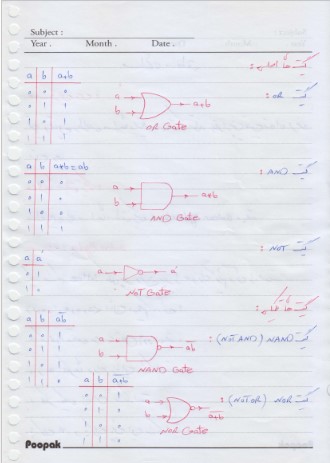 Subject :
Year . Month . Date .
a b a+b
0 0 0
0 1 1
1 0 1
1 1 1
گیت or :
a
b
a+b
OR Gate
a b a*b=ab
0 0 0
0 1 0
1 0 0
1 1 1
گیت AND :
a
b
a*b
AND Gate
گیت NOT :
a a'
0 1
1 0
a a'
NOT Gate
a b a̅b̅
0 0 1
0 1 1
1 0 1
گیت NAND (NOT AND) :
a
b
a̅b̅
NAND Gate
a b a̅+̅b̅
0 0 1
0 1 0
1 0 0
1 1 0
گیت NOR (NOT OR) :
a
b
a̅+̅b̅
NOR Gate
Poopak